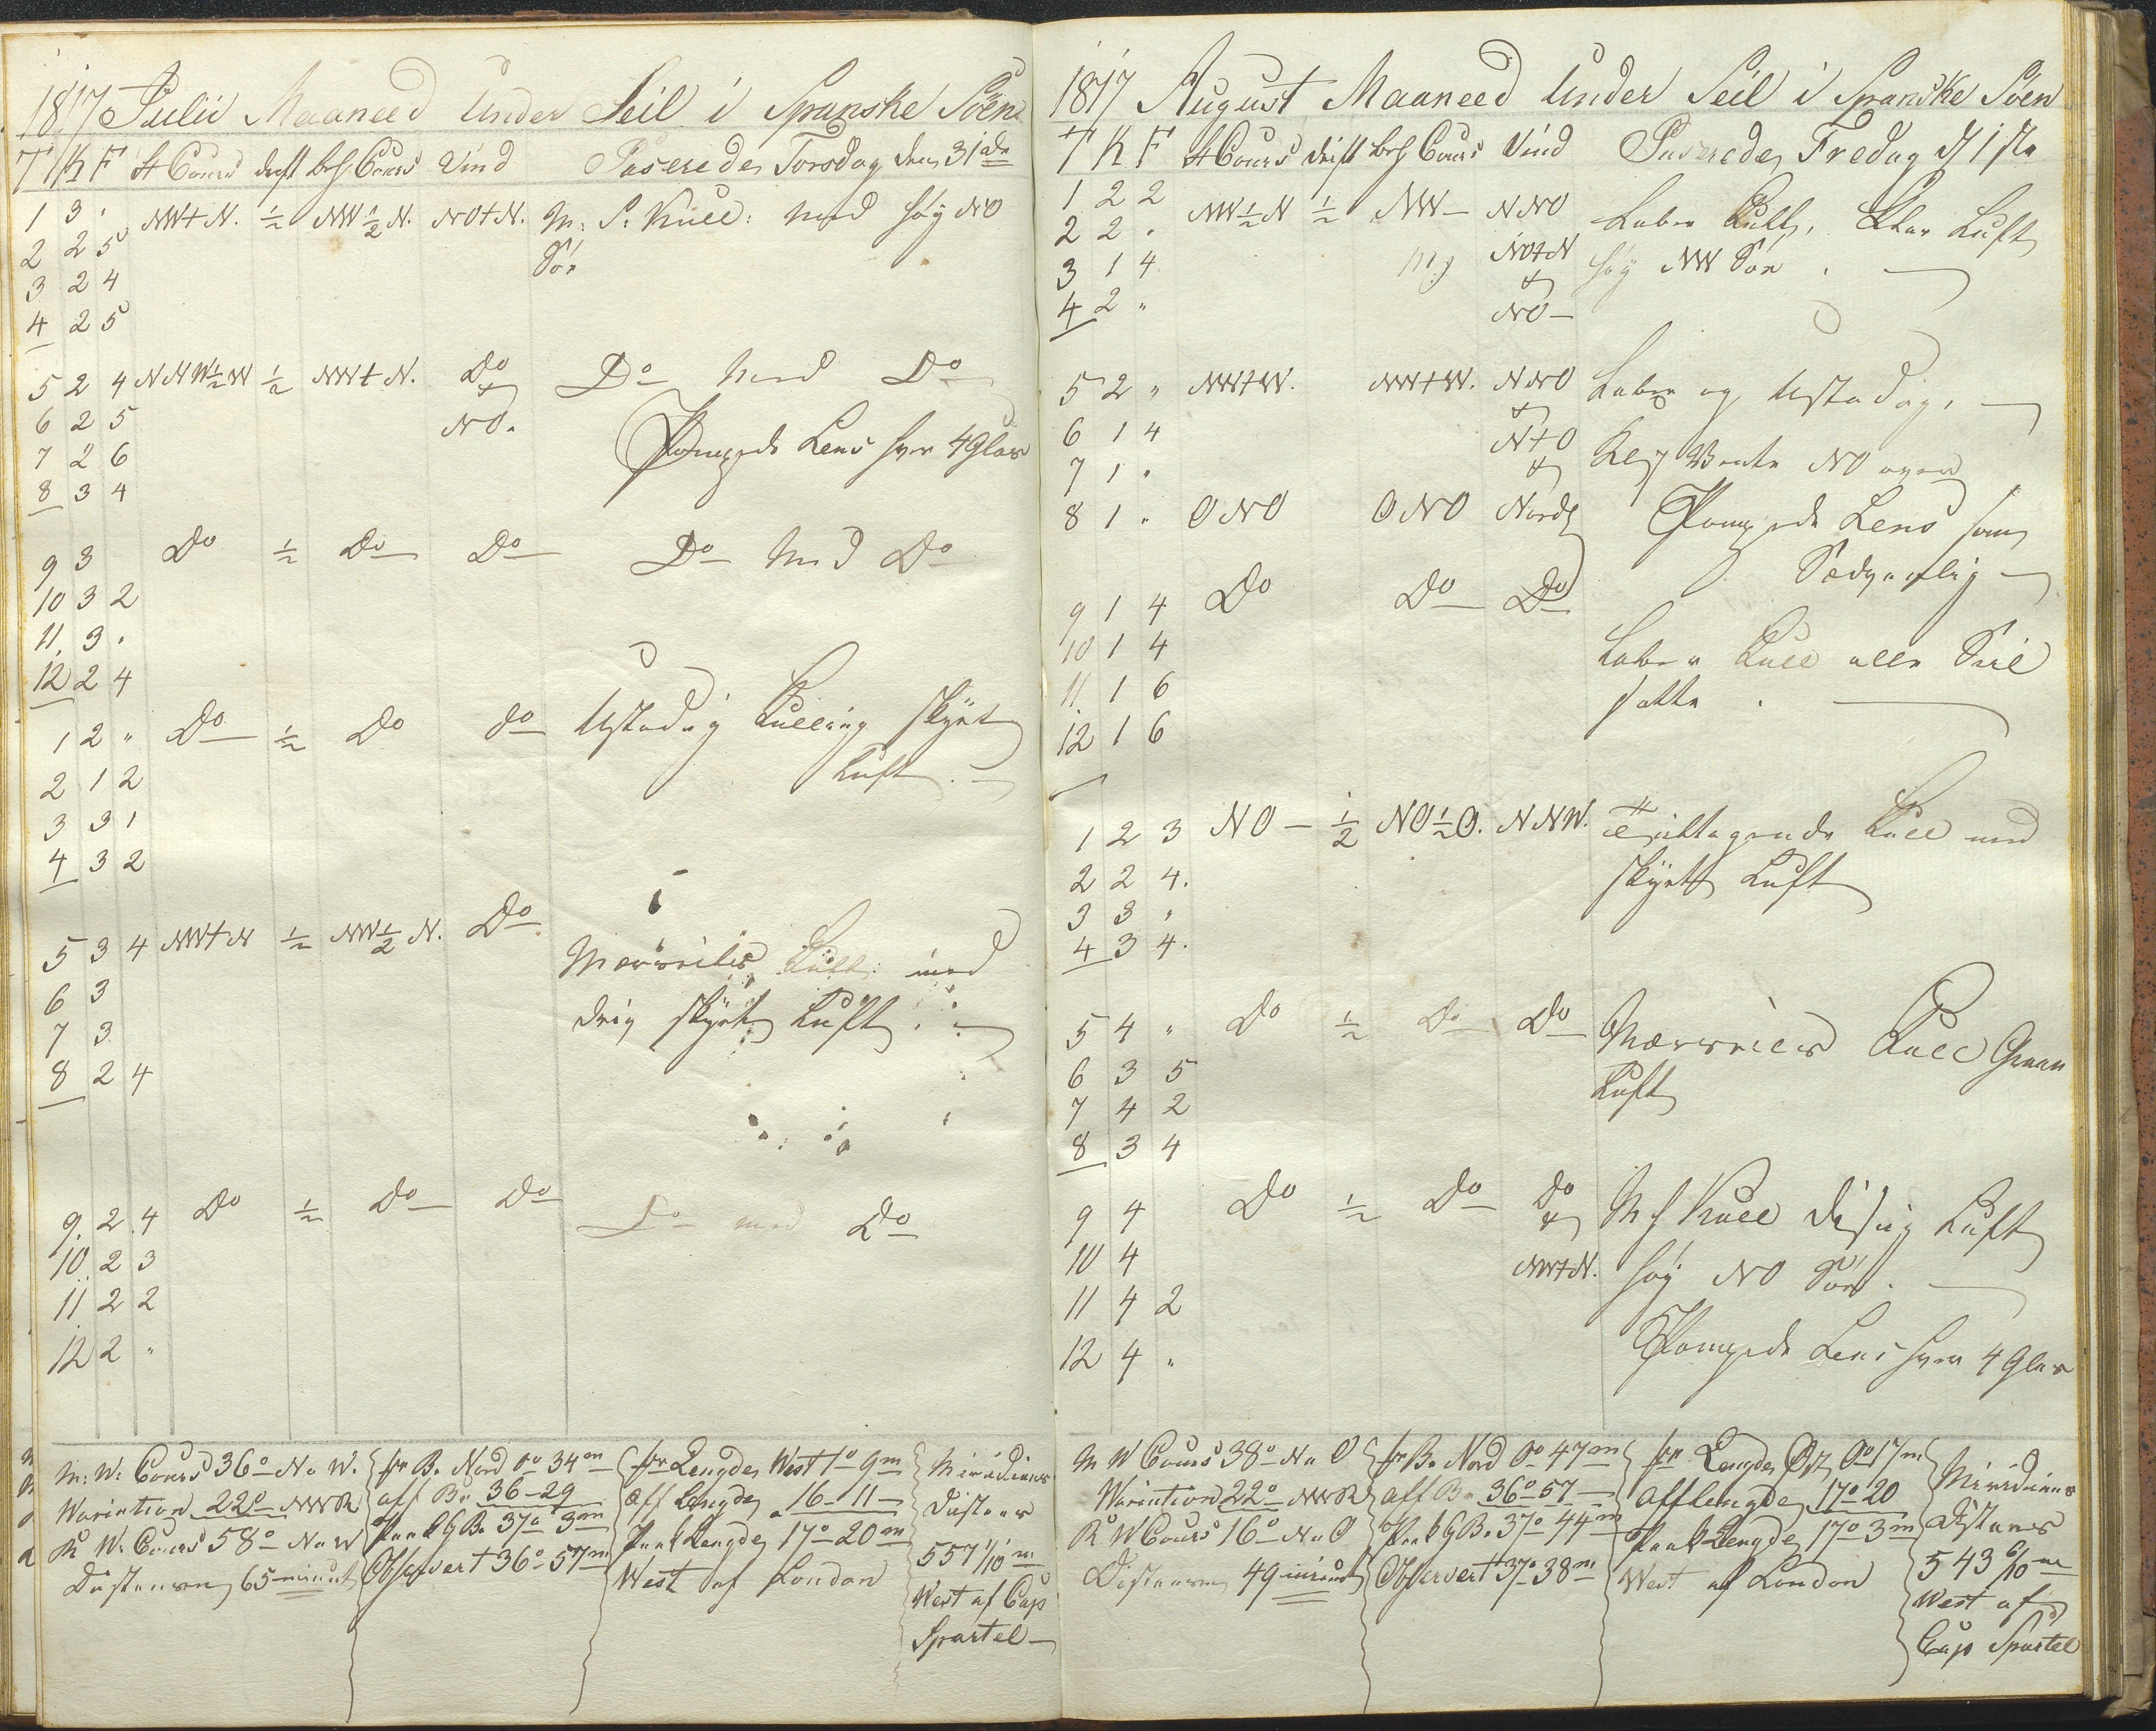 1817 Julii Maaned Under Seil i Spanske Söen
T K F St Cours drift beh Cours Vind Paserede Torsdag den 31te
1 3 " NWtN. ½ NW½N. NOtN. M: S: Kull: med høy NO
2 2 5 Söe
3 2 4
4 2 5
5 2 4 NNW½W ½ NWtN. Do Do med Do
6 2 5 NO. Pompede Lens hver 4 Glas
7 2 6
8 3 4
9 3 Do ½ Do Do Do med Do
10 3 2
11 3 "
12 2 4
1 2 " Do ½ Do do Ustadig Kulling skyet
2 1 2 Luft
3 3 1
4 3 2
5 3 4 NWtN ½ NW½N. Do Mersseils Kull: med
6 3 skyet Luft
7 3
8 2 4
9 2 4 Do ½ Do Do Do med Do
10 2 3
11 2 2
12 2 "
M: W: Cours 36° N o W.
Wariation 22° NWR
R W: Cours 58° N o W
Distansen 65 minut
for B. Nord 0° 34m
aff B. 36-29
Paak G B. 37° 3m
Observert 36° 57m
for Lengde West 1° 9m
aff Lengde 16-11
Paak Lengde 17° 20m
West af London
Miridians
Distans
557 1/10 m
West af Cap
Spartel
1817 August Maaneed Under Seil i Spanske Söen
T K F St Cours drift beh Cours Vind Paserede Fredag d 1ste
1 2 2 NW½N ½ NW NNO Laber Kull, Klar Luft
2 2 " NOtN høy NW Söe
3 1 4
4 2 " NO
5 2 " NWtW. NWtW. NNO Laber og Ustadig,
6 1 4 NtO
7 1 " Kl 7 Vente NO over
8 1 " ONO ONO Nordl Pompede Lens som
Sædvanlig
9 1 4 Do Do Do
10 1 4 Laber Kull alle Seil
11 1 6 satte
12 1 6
1 2 3 NO ½ NO½O. NNW. Tiltagende Kull med
2 2 4. skyet Luft
3 3 "
4 3 4.
5 4 " Do ½ Do Do Mersseils Kull Graae
6 3 5 Luft
7 4 2
8 3 4
9 4 Do ½ Do Do M S Kull disig Luft
10 4 NWtN. høy NO Söe
11 4 2
12 4 " Pompede Lens hver 4 Glas
M W Cours 38° N o O
Wariation 22° NWR
R W Cours 16° N o O
Distansen 49 minut
for B. Nord 0° 47m
aff B. 36° 57
Paak G B. 37° 44m
Observert 37° 38m
for Lengde Ost 0° 17m
aff Lengde 17° 20
Paak Lengde 17° 3m
West af London
Miridians
Distans
543 6/10 m
West af
Cap Spartel